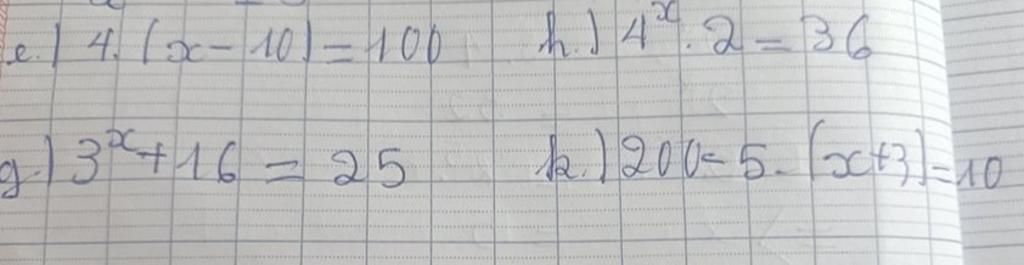 e.) 4. (x - 10) = 100
h.) 4^x . 2 = 36
g.) 3^x + 16 = 25
k.) 200 - 5. (x + 3) = 10